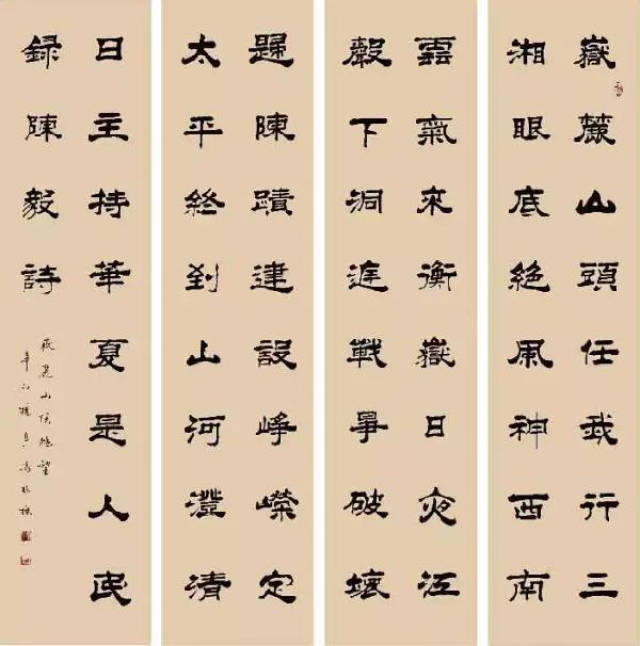 嶽麓山頭任我行三
湘眼底絶風神西南
雲氣來衡嶽日夜江
聲下洞庭戰爭破壞
題陳蹟建設崢嶸定
太平終到山河澄清
日主持華夏是人民
録陳毅詩